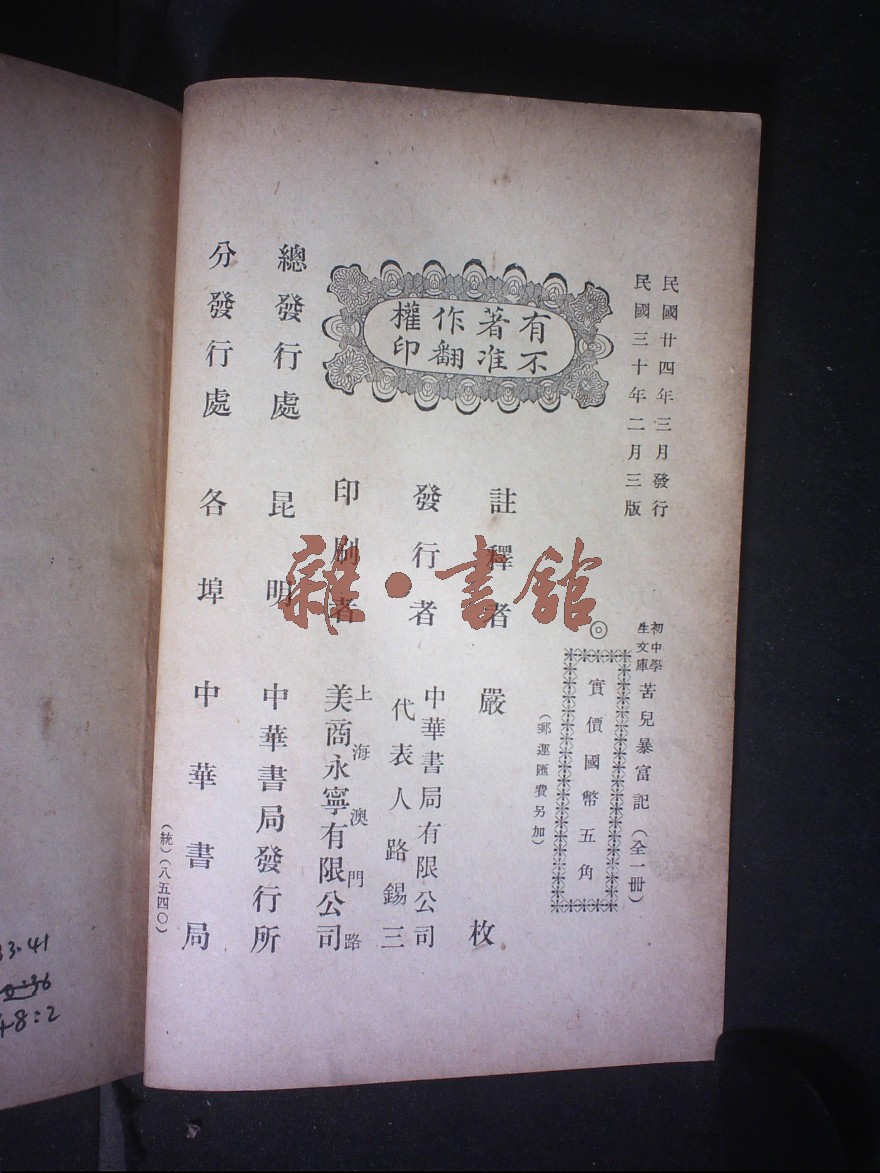 民國廿四年三月發行
民國三十年二月三版
初中學生文庫
苦兒暴富記（全一冊）
◎
實價國幣五角
（郵運匯費另加）
有著作權
不准翻印
註釋者 嚴枚
發行者 中華書局有限公司
代表人路錫三
印刷者 上海澳門路
美商永寧有限公司
總發行處 昆明 中華書局發行所
分發行處 各埠 中華書局
（統）（八五四〇）
雜·書館
3·41
48:2